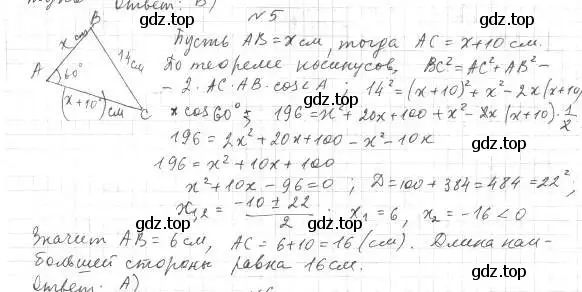 Ответ: В)
№5
B
x см
14 см
A
60°
(x+10) см
C
Пусть AB = x см, тогда AC = x+10 см.
По теореме косинусов, BC² = AC² + AB² –
– 2 · AC · AB · cos∠A ; 14² = (x+10)² + x² – 2x(x+10)
x cos60° ; 196 = x² + 20x + 100 + x² – 2x(x+10) · 1/2
196 = 2x² + 20x + 100 – x² – 10x
196 = x² + 10x + 100
x² + 10x – 96 = 0 ; D = 100 + 384 = 484 = 22² ;
x₁,₂ = (–10 ± 22)/2 ; x₁ = 6, x₂ = –16 < 0
Значит AB = 6 см, AC = 6+10 = 16 (см). Длина наи-
большей стороны равна 16 см.
Ответ: А)
gdz.top gdz.top gdz.top
gdz.top gdz.top gdz.top
gdz.top gdz.top gdz.top
gdz.top gdz.top gdz.top